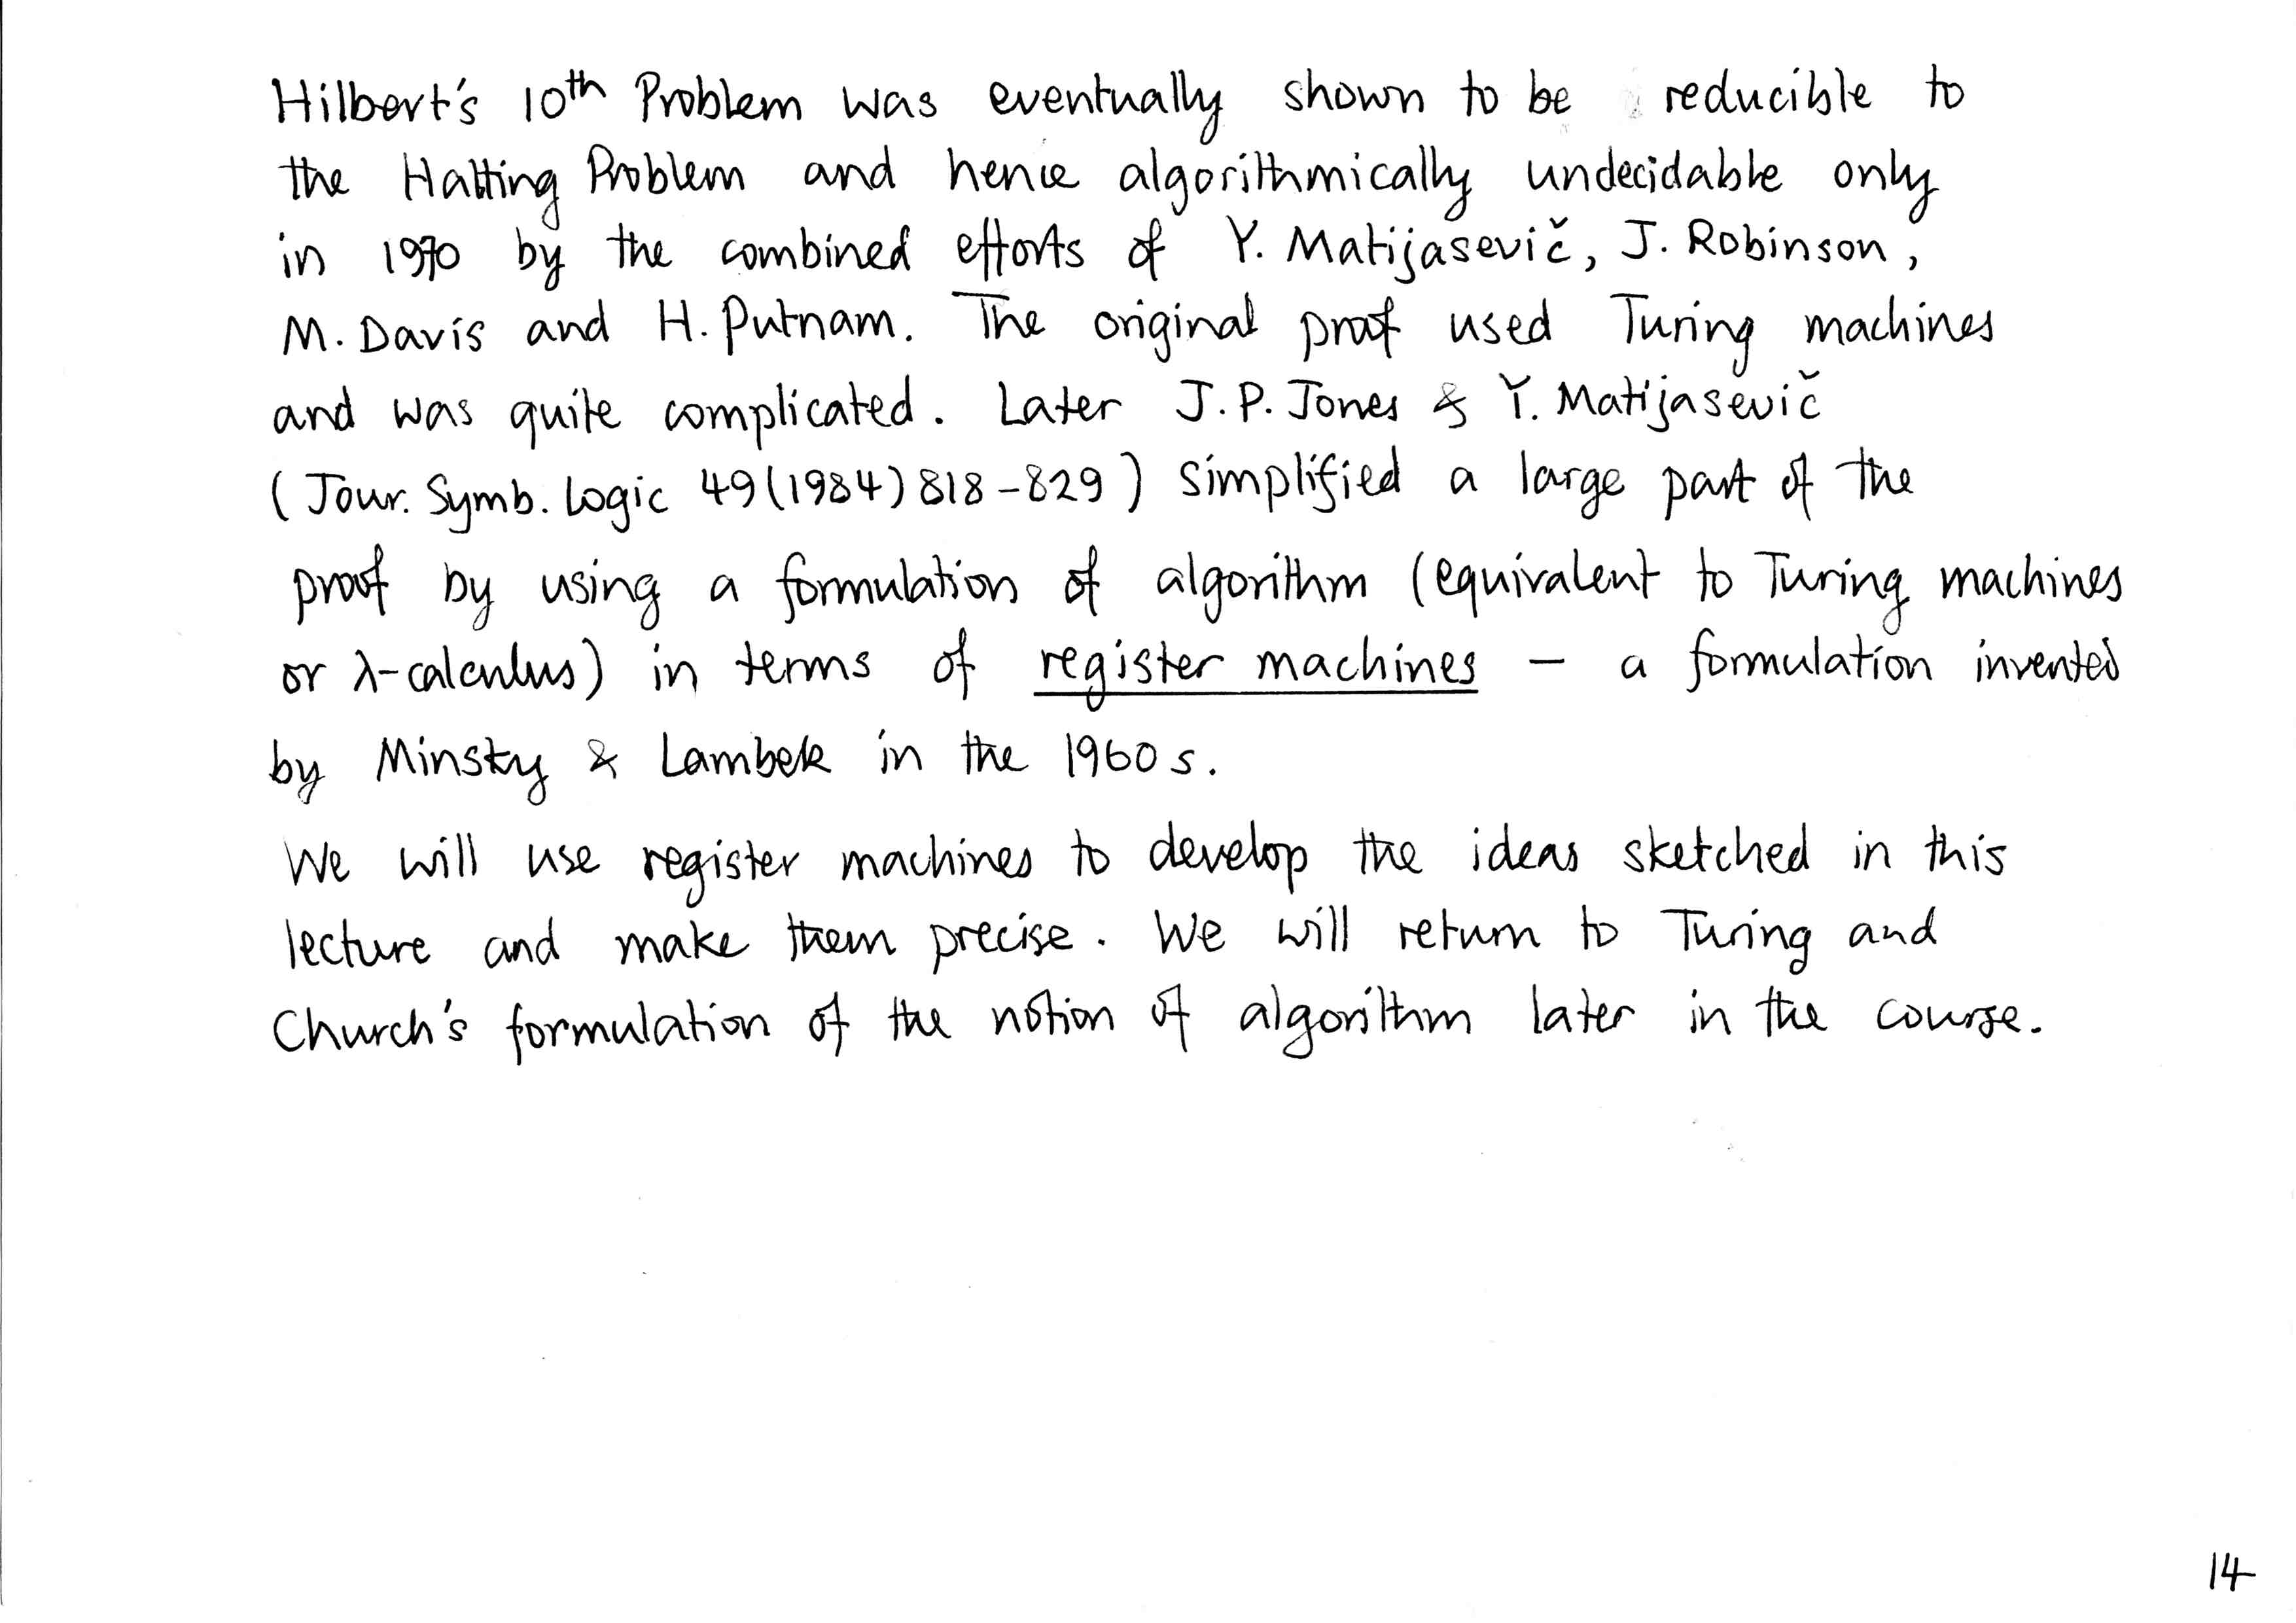 Hilbert's 10th Problem was eventually shown to be reducible to
the Halting Problem and hence algorithmically undecidable only
in 1970 by the combined efforts of Y. Matijasevič, J. Robinson,
M. Davis and H. Putnam. The original proof used Turing machines
and was quite complicated. Later J.P. Jones & Y. Matijasevič
(Jour. Symb. Logic 49(1984)818-829) simplified a large part of the
proof by using a formulation of algorithm (equivalent to Turing machines
or λ-calculus) in terms of register machines – a formulation invented
by Minsky & Lambek in the 1960s.
We will use register machines to develop the ideas sketched in this
lecture and make them precise. We will return to Turing and
Church's formulation of the notion of algorithm later in the course.
14